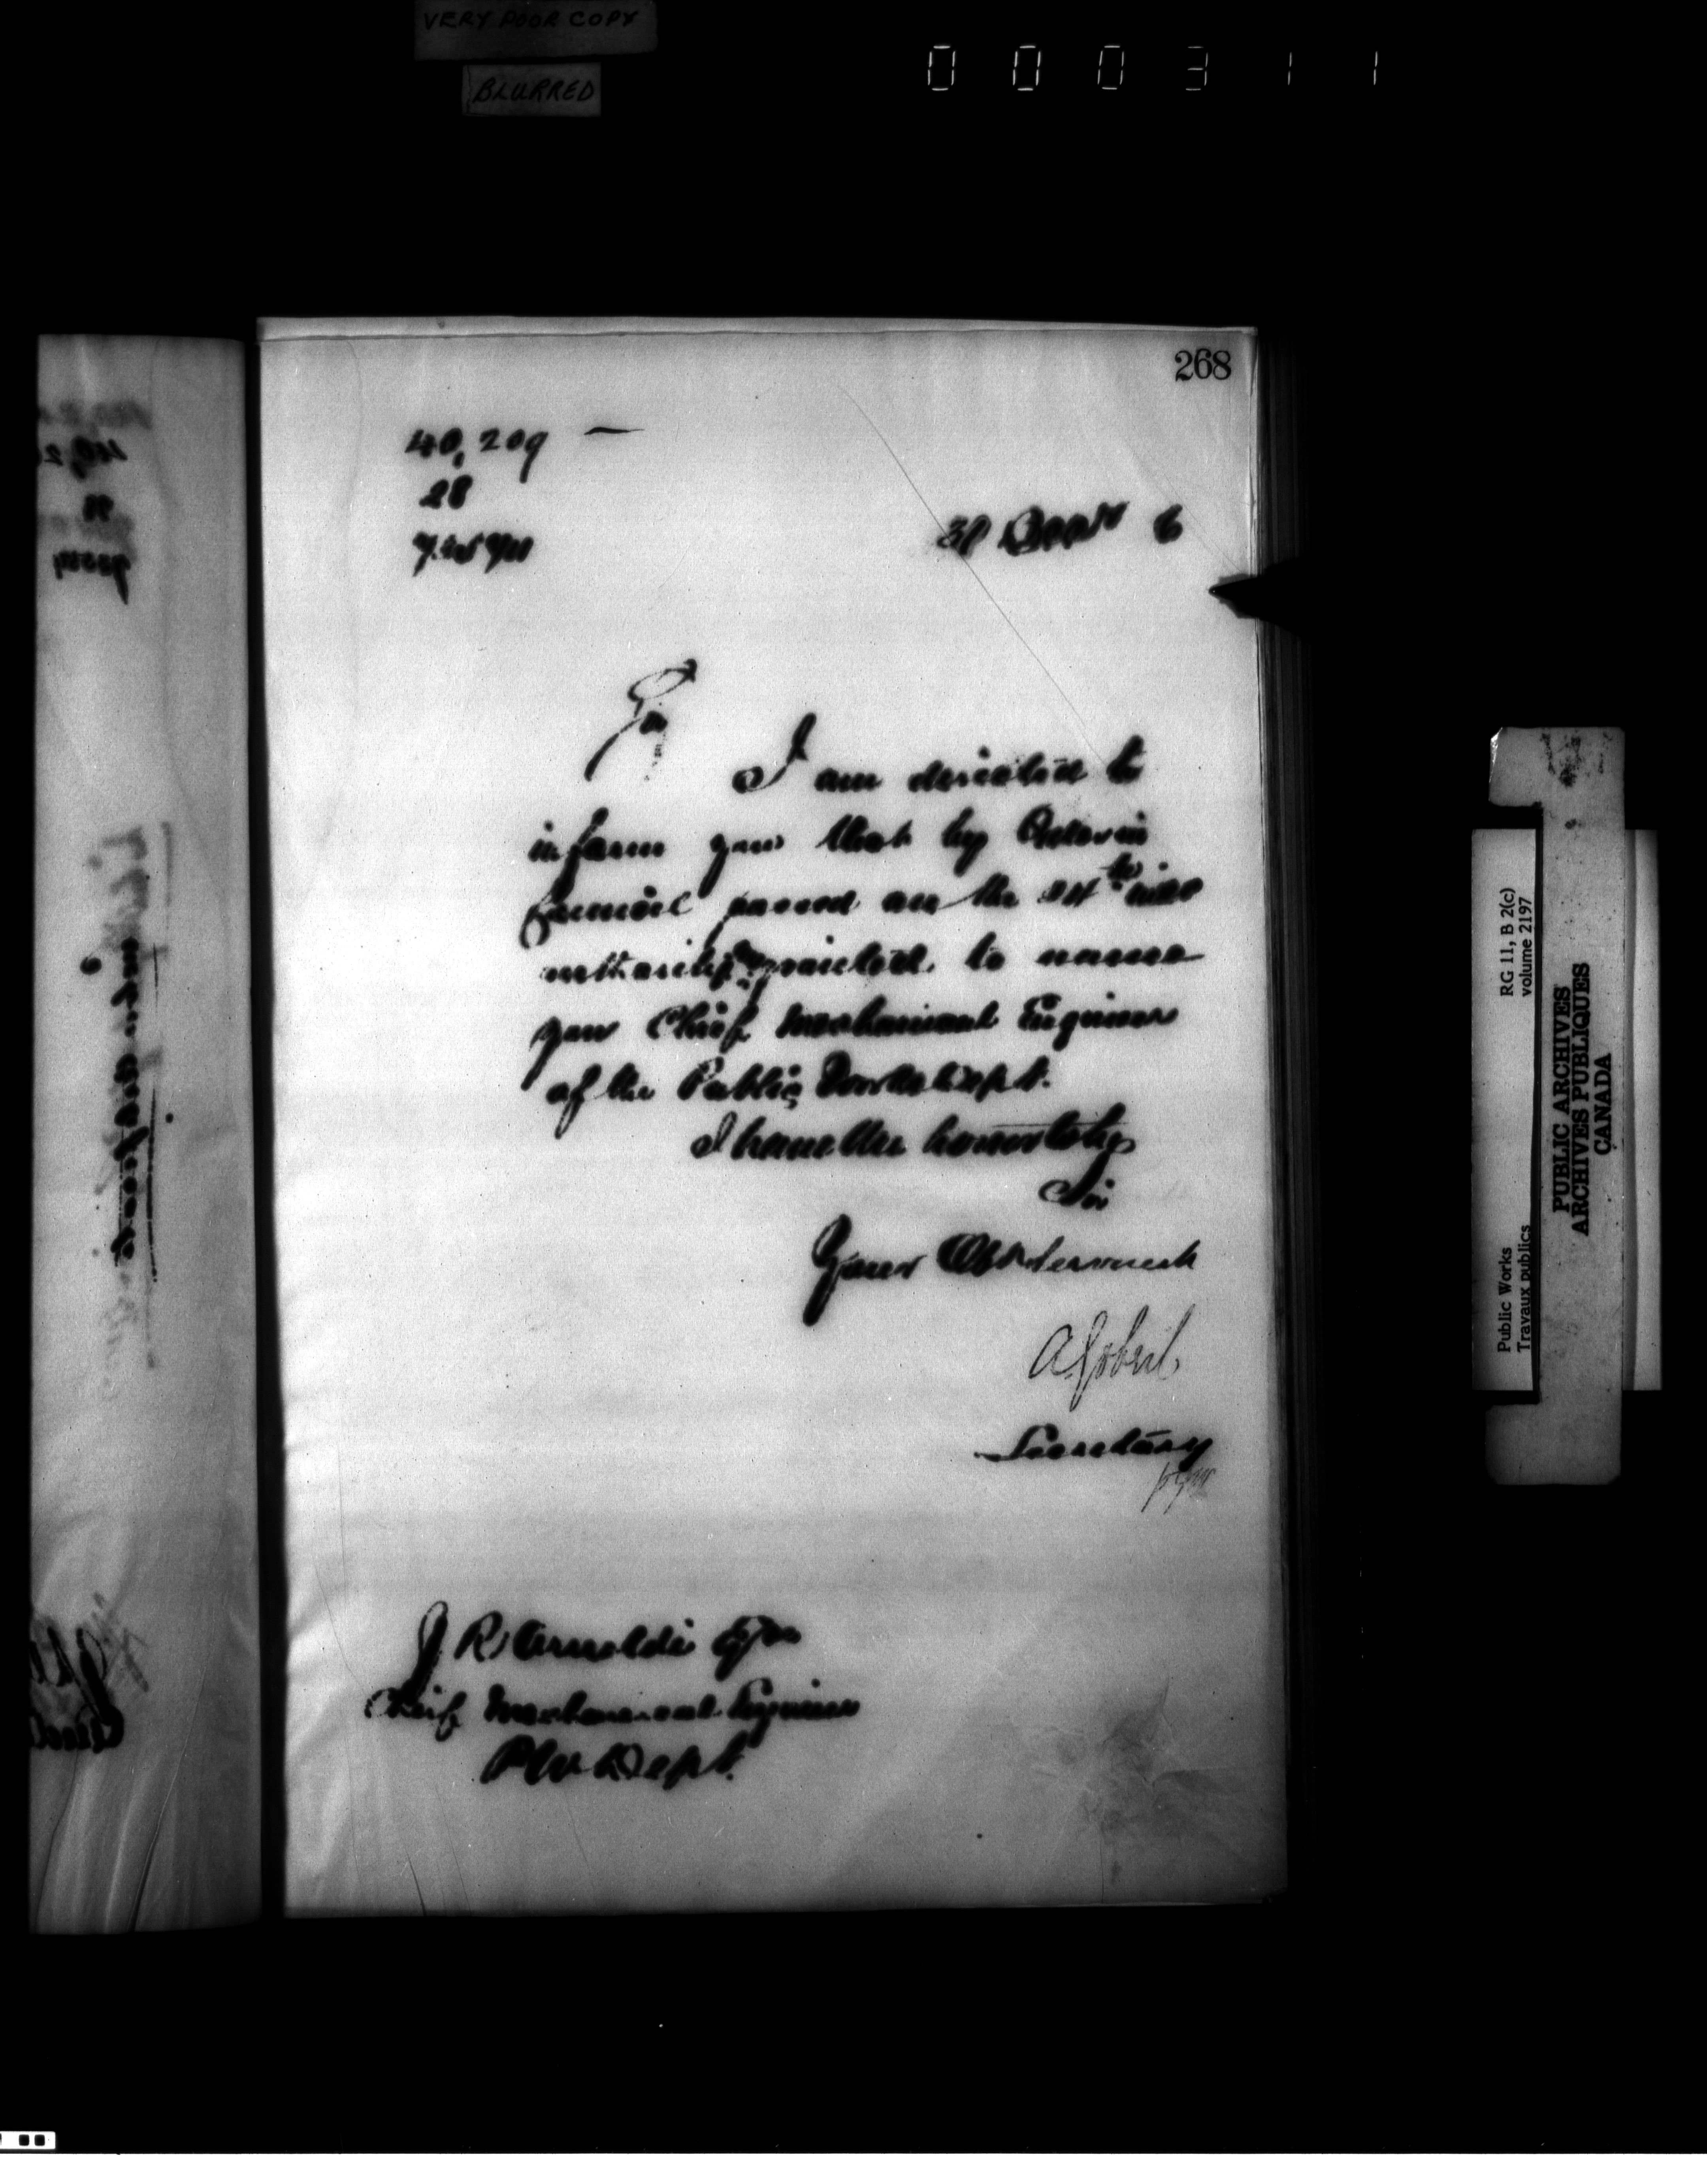 VERY POOR COPY
BLURRED
000311
268
40,209 —
28
31 Decr 6
Sir
I am directed to
inform you that by Order in
Council passed on the 24th inst
authority granted to name
you Chief Mechanical Engineer
of the Public Works Dept.
I have the honor to be
Sir
Your Obdt Servant
A Gobeil
Secretary
J R Arnoldi Esqr
Chief Mechanical Engineer
P W Dept.
RG 11, B 2(c)
volume 2197
Public Works
Travaux publics
PUBLIC ARCHIVES
ARCHIVES PUBLIQUES
CANADA